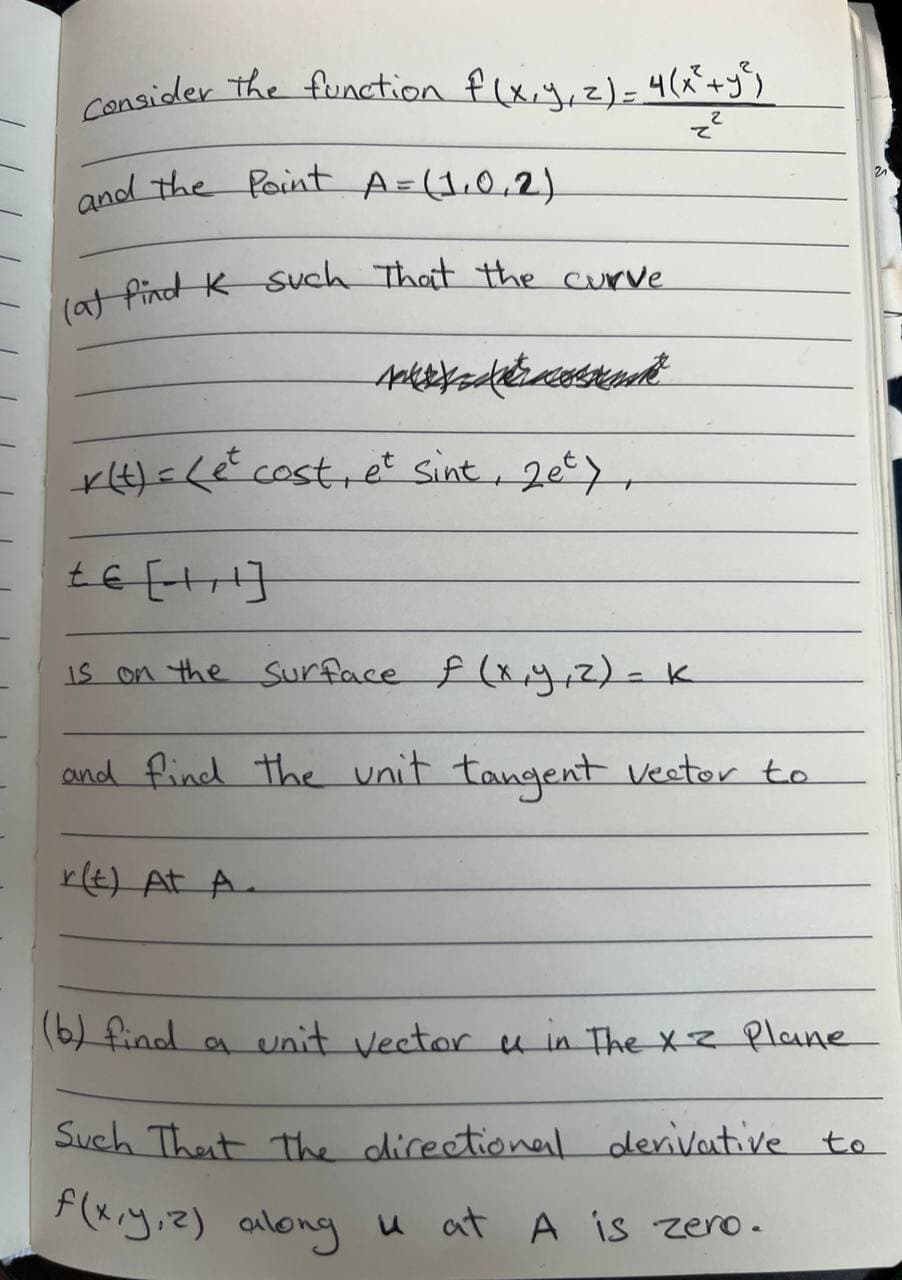 Consider the function f(x,y,z) = 4(x²+y²)/z²
and the Point A=(1,0,2)
(a) find K such That the curve
r(t) = ⟨e^t cost, e^t sint, 2e^t⟩,
t ∈ [-1,1]
is on the surface f(x,y,z) = K
and find the unit tangent vector to
r(t) At A.
(b) find a unit vector u in The xz Plane
Such That the directional derivative to
f(x,y,z) along u at A is zero.